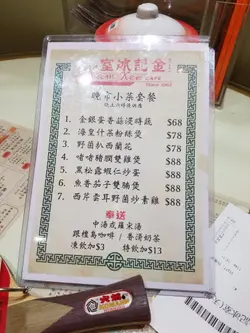 金記冰室
Kam Kee Cafe
Since 1967
晚市小菜套餐
1. 金銀蛋香菇浸時蔬 $68
2. 海皇什菜粉絲煲 $78
3. 野菌扒西蘭花 $78
4. 啫啫豬膶雙雞煲 $88
5. 黑松露蝦仁炒蛋 $88
6. 魚香茄子雙腩煲 $88
7. 西芹雲耳野菌炒素雞 $88
奉送
中湯或羅宋湯
跟檯島咖啡 / 香滑奶茶
凍飲加$3 特飲加$13
火鍋